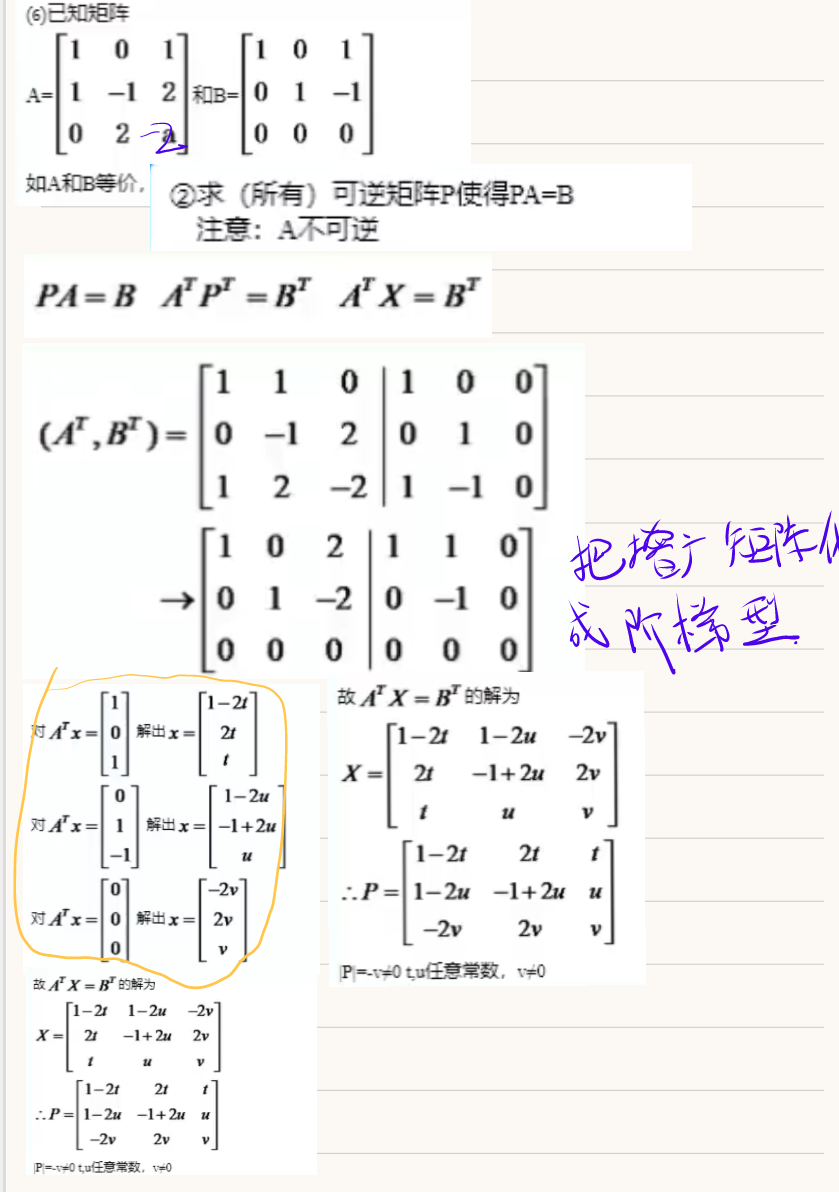 (6)已知矩阵
A=[1 0 1; 1 −1 2; 0 2 a] 和B=[1 0 1; 0 1 −1; 0 0 0]
-2
如A和B等价,
②求（所有）可逆矩阵P使得PA=B
注意：A不可逆
PA=B A^T P^T=B^T A^T X=B^T
(A^T,B^T)=[1 1 0 | 1 0 0; 0 −1 2 | 0 1 0; 1 2 −2 | 1 −1 0]
→[1 0 2 | 1 1 0; 0 1 −2 | 0 −1 0; 0 0 0 | 0 0 0]
把增广矩阵化
成阶梯型.
对 A^T x=[1; 0; 1] 解出 x=[1−2t; 2t; t]
对 A^T x=[0; 1; −1] 解出 x=[1−2u; −1+2u; u]
对 A^T x=[0; 0; 0] 解出 x=[−2v; 2v; v]
故 A^T X=B^T 的解为
X=[1−2t 1−2u −2v; 2t −1+2u 2v; t u v]
∴P=[1−2t 2t t; 1−2u −1+2u u; −2v 2v v]
|P|=-v≠0 t,u任意常数，v≠0
故 A^T X=B^T 的解为
X=[1−2t 1−2u −2v; 2t −1+2u 2v; t u v]
∴P=[1−2t 2t t; 1−2u −1+2u u; −2v 2v v]
|P|=-v≠0 t,u任意常数，v≠0